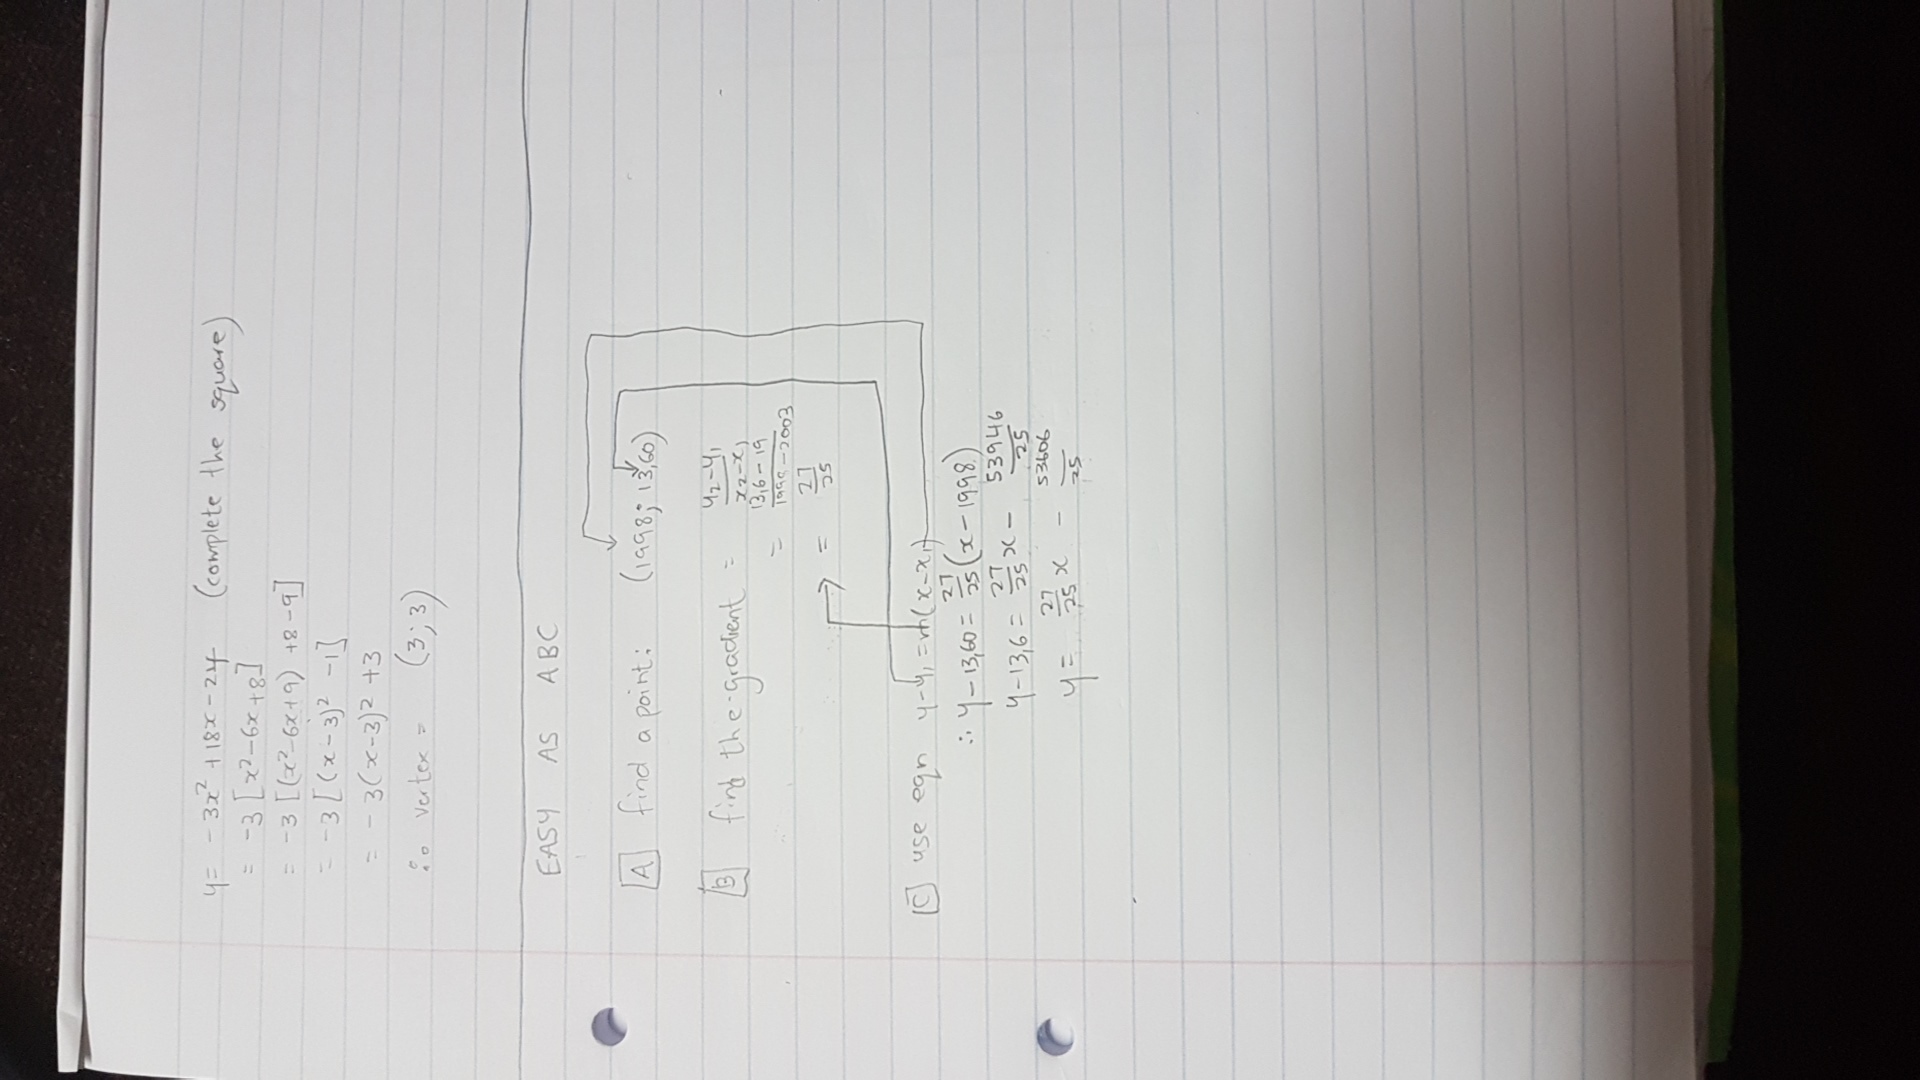 y = -3x² + 18x - 24 (complete the square)
= -3[x² - 6x + 8]
= -3[(x² - 6x + 9) + 8 - 9]
= -3[(x - 3)² - 1]
= -3(x - 3)² + 3
∴ vertex = (3; 3)
EASY AS ABC
[A] find a point: (1998; 13,60)
[B] find the gradient = (y₂ - y₁)/(x₂ - x₁)
= (13,6 - 19)/(1998 - 2003)
= 27/25
[C] use eqn y - y₁ = m(x - x₁)
∴ y - 13,60 = 27/25 (x - 1998)
y - 13,6 = 27/25 x - 53946/25
y = 27/25 x - 53606/25